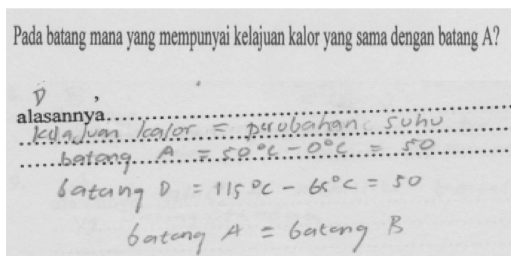 Pada batang mana yang mempunyai kelajuan kalor yang sama dengan batang A?
D
alasannya,
kelajuan kalor = perubahan suhu
batang A = 50°C - 0°C = 50
batang D = 115°C - 65°C = 50
batang A = batang B